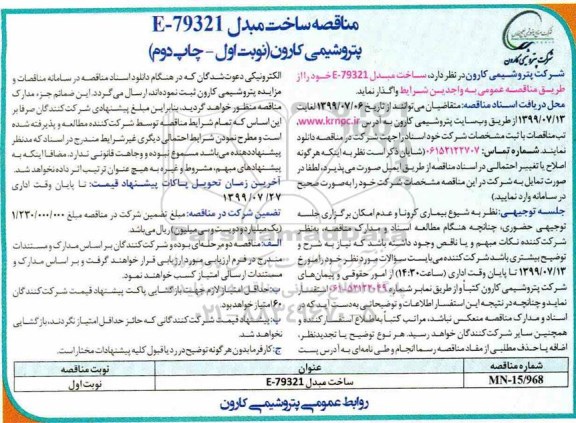 مناقصه ساخت مبدل E-79321
پتروشیمی کارون (نوبت اول - چاپ دوم)
شرکت پتروشیمی کارون
شرکت پتروشیمی کارون در نظر دارد، ساخت مبدل E-79321 خود را از
طریق مناقصه عمومی به واجدین شرایط واگذار نماید
محل دریافت اسناد مناقصه: متقاضیان می توانند از تاریخ ۱۳۹۹/۰۷/۰۶ لغایت
۱۳۹۹/۰۷/۱۳ از طریق وب سایت پتروشیمی کارون به آدرس www.krnpc.ir
ثبت مشخصات شرکت خود اسناد را جهت شرکت در مناقصه دانلود
نمایند. شماره تماس: ۰۶۱۵۲۱۲۳۷۰۷ (شایان ذکر است نظر به اینکه هرگونه
اصلاح یا تغییر احتمالی در اسناد مناقصه از طریق ایمیل صورت می پذیرد، لطفا در
صورت تمایل به شرکت در این مناقصه مشخصات شرکت خود را به صورت صحیح
در سامانه وارد نمایید)
جلسه توجیهی: نظر به شیوع بیماری کرونا و عدم امکان برگزاری جلسه
توجیهی حضوری، چنانچه هنگام مطالعه اسناد و مدارک مناقصه به نظر
شرکت کننده نکات مبهم و یا ناقص وجود داشته باشد که نیاز به شرح و
توضیح بیشتری باشد شرکت کننده می بایست سوالات مورد نظر خود را تا مورخ
۱۳۹۹/۰۷/۱۳ تا پایان وقت اداری (ساعت ۱۴:۳۰) از امور حقوقی و پیمان های
شرکت پتروشیمی کارون کتباً و از طریق نمابر شماره استفسار
نماید و چنانچه در نتیجه این استفسار اطلاعات و توضیحاتی به دست آید که در
اسناد و مدارک مناقصه منعکس نباشد، مراتب کتباً به اطلاع استفسار کننده و
همچنین سایر شرکت کنندگان خواهد رسید. هر نوع توضیح یا تجدیدنظر،
اضافه یا حذف مطلبی از مفاد مناقصه رسماً انجام و طی نامه ای به آدرس پست
الکترونیکی دعوت شدگان که در هنگام دانلود اسناد مناقصه در سامانه مناقصات و
مزایده پتروشیمی کارون ثبت نموده اند، ارسال می گردد. این ضمائم جزء مدارک
مناقصه منظور خواهد گردید. بنابراین مبلغ پیشنهادی شرکت کنندگان صرفا بر
این اساس که تمام شرایط مناقصه توسط شرکت کننده مطالعه و پذیرفته شده
است و مطرح نمودن شرایط احتمالی دیگری غیر شرایط مندرج در اسناد که مدنظر
پیشنهاددهنده می باشد مسموع نبوده و وجاهت قانونی ندارد. مضافا اینکه به
پیشنهادهای مبهم، مشروط و غیره به هیچ عنوان ترتیب اثر داده نخواهد شد.
آخرین زمان تحویل پاکات پیشنهاد قیمت: تا پایان وقت اداری
۱۳۹۹/۰۷/۲۷
تضمین شرکت در مناقصه: مبلغ تضمین شرکت در مناقصه مبلغ ۱/۲۳۰/۰۰۰/۰۰۰
(یک میلیارد و دویست و سی میلیون) ریال می باشد
الف: مناقصه دو مرحله ای بوده و شرکت کنندگان بر اساس مدارک و مستندات
مندرج در فرم ارزیابی مورد ارزیابی قرار خواهند گرفت و بر اساس مدارک و
مستندات ارسالی امتیاز کسب خواهند نمود.
ب: حداقل امتیاز لازم جهت بازگشایی پاکت پیشنهاد قیمت شرکت کنندگان
۶۰ امتیاز خواهد بود.
پ: پیشنهاد قیمت شرکت کنندگانی که حائز حداقل امتیاز نگردند، بازگشایی
نخواهد شد.
ج: کارفرما بدون هرگونه توضیح در رد یا قبول کلیه پیشنهادات مختار است.
شماره مناقصه عنوان نوبت مناقصه
MN-15/968 ساخت مبدل E-79321 نوبت اول
روابط عمومی پتروشیمی کارون